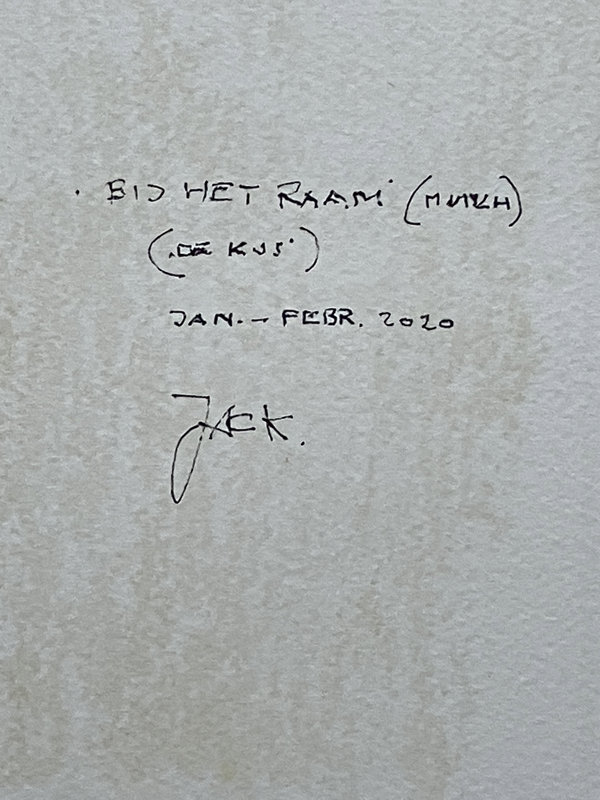 . BIJ HET RAAM' (MUNCH)
(.DE KUS')
JAN. - FEBR. 2020
JACK.